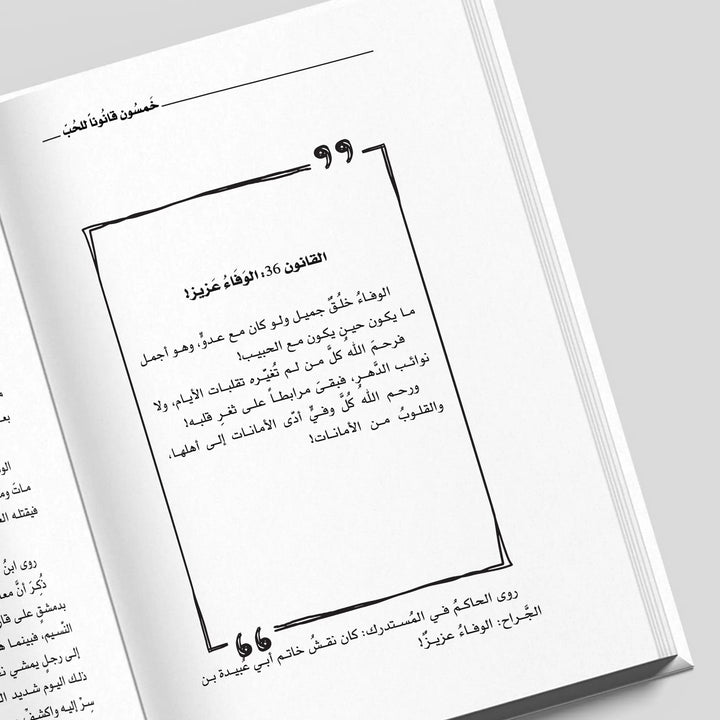 خَمسُون قانُوناً للحُبّ
القانون 36: الوَفَاءُ عَزيز!
الوفاءُ خلُقٌ جميل ولو كان مع عدوٍّ، وهو أجمل
ما يكون حين يكون مع الحبيب!
فرحمَ اللهُ كلَّ من لم تُغيّره تقلبات الأيام، ولا
نوائب الدَّهرِ، فبقيَ مرابطاً على ثغرِ قلبه!
ورحم اللهُ كُلَّ وفيٍّ أدّى الأمانات إلى أهلها،
والقلوبُ من الأمانات!
روى الحاكمُ في المُستدرك: كان نقشُ خاتم أبي عُبيدة بن
الجَّراح: الوفاءُ عزيزٌ!
الو
ماتَ وم
فيقتله الع
روى ابنُ
ذُكِرَ أنَّ معا
بدمشقٍ على قار
النَّسيم، فبينما ه
إلى رجلٍ يمشي نـ
ذلك اليوم شديد ال
سِرْ إليه واكشفْ